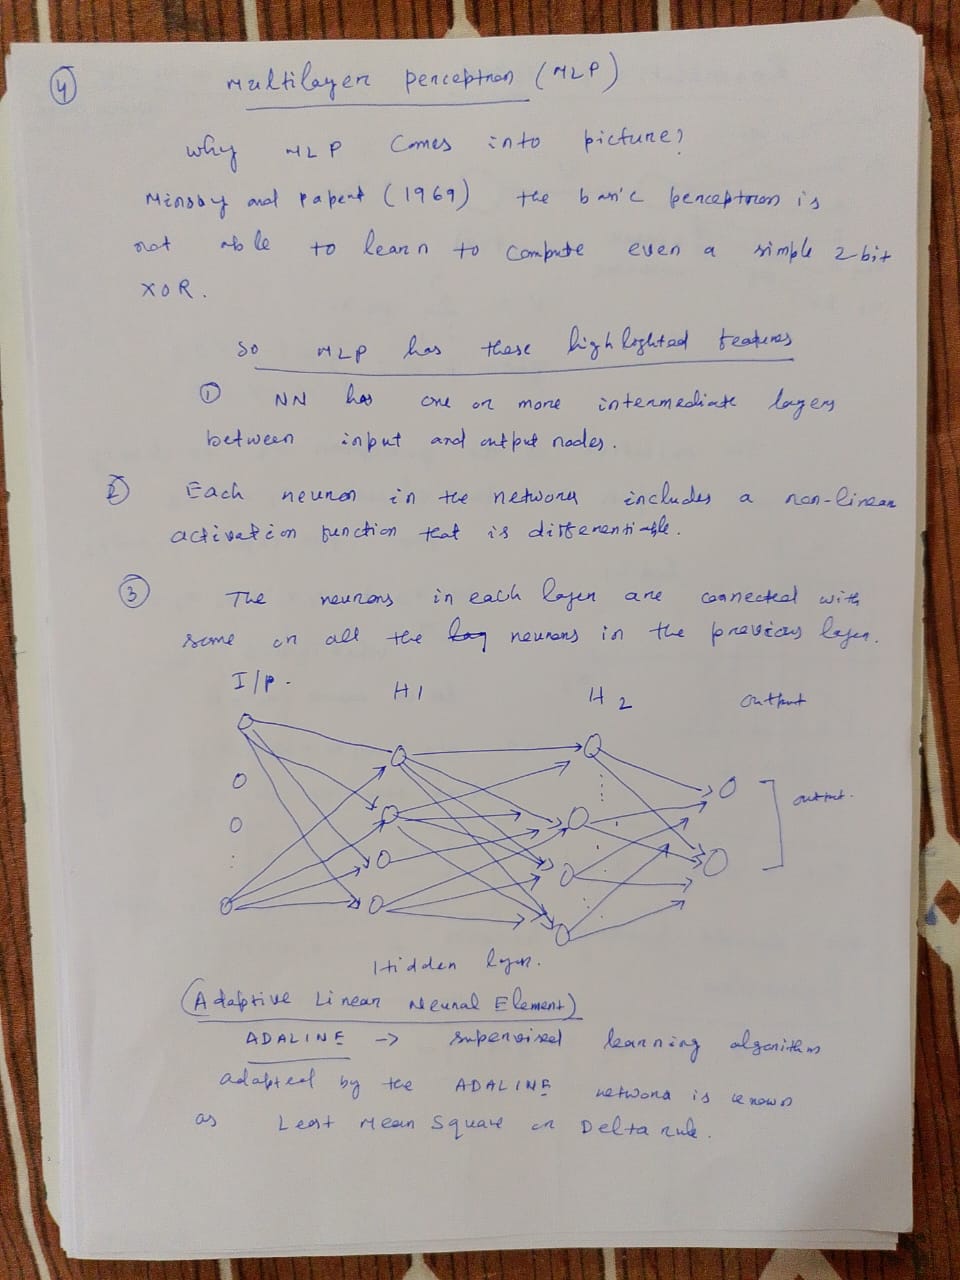 4
Multilayer perceptron (MLP)
Why MLP comes into picture?
Minsky and Papert (1969) the basic perceptron is
not able to learn to compute even a simple 2-bit
XOR.
So MLP has these highlighted features
1 NN has one or more intermediate layers
between input and output nodes.
2 Each neuron in the network includes a non-linear
activation function that is differentiable.
3 The neurons in each layer are connected with
some or all the neurons in the previous layer.
I/P. H1 H2 output
output.
Hidden layer.
(Adaptive Linear Neural Element)
ADALINE -> supervised learning algorithm
adapted by the ADALINE network is known
as Least Mean Square or Delta rule.